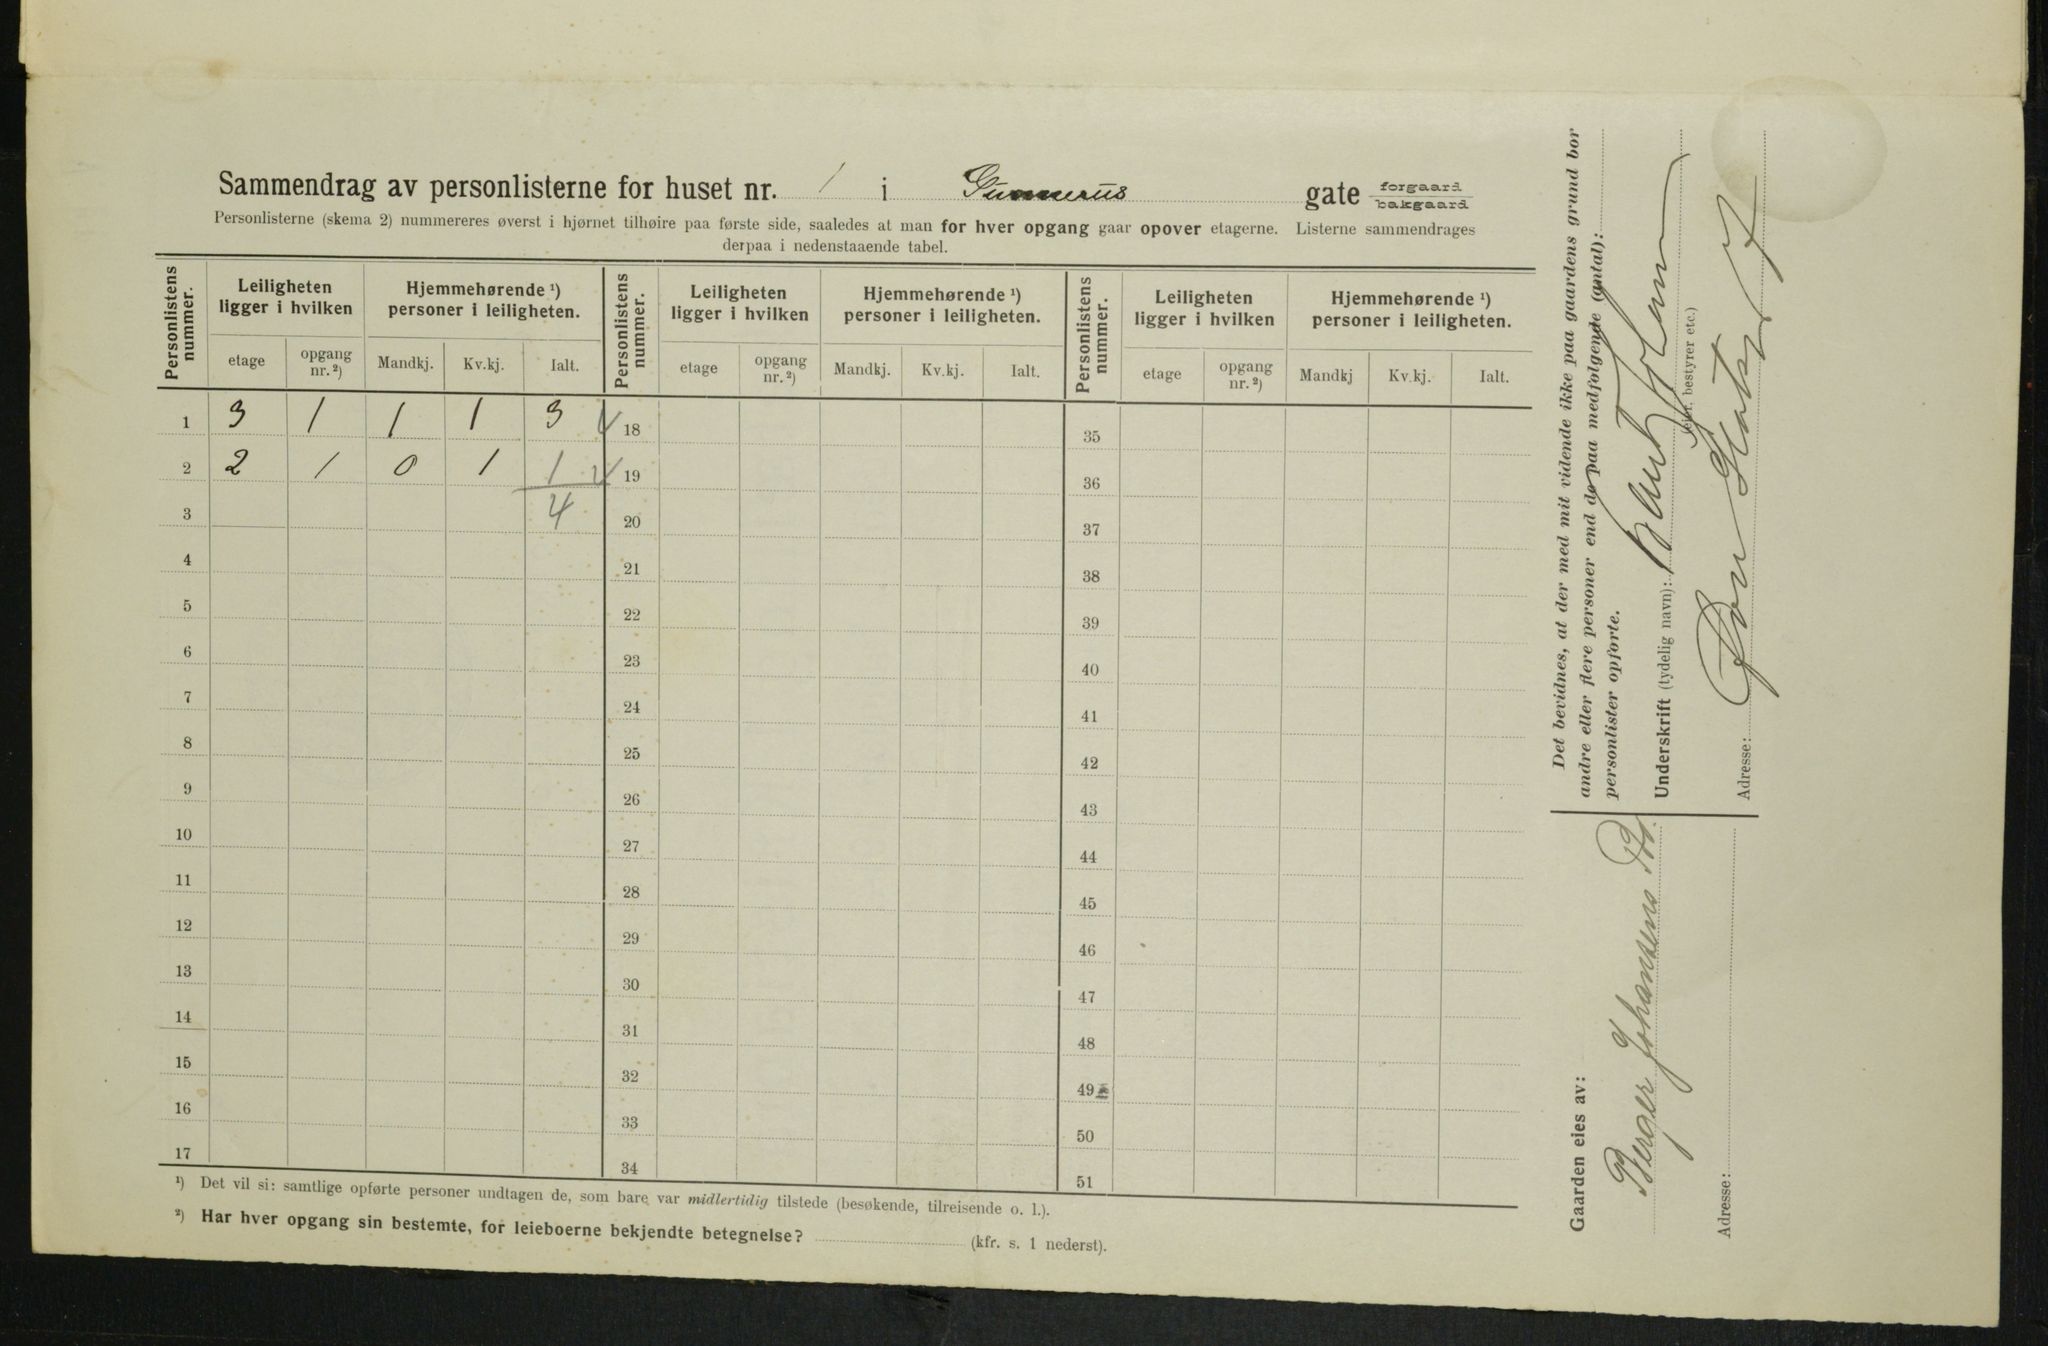 Sammendrag av personlisterne for huset nr. 1 i Gunnerus gate forgaard bakgaard
Personlisterne (skema 2) nummereres øverst i hjørnet tilhøire paa første side, saaledes at man for hver opgang gaar opover etagerne. Listerne sammendrages
derpaa i nedenstaaende tabel.
Personlistens nummer. Leiligheten ligger i hvilken Hjemmehørende ¹) personer i leiligheten. Personlistens nummer. Leiligheten ligger i hvilken Hjemmehørende ¹) personer i leiligheten. Personlistens nummer. Leiligheten ligger i hvilken Hjemmehørende ¹) personer i leiligheten.
etage opgang nr. ²) Mandkj. Kv.kj. Ialt. etage opgang nr. ²) Mandkj. Kv.kj. Ialt. etage opgang nr. ²) Mandkj Kv.kj. Ialt.
1 3 1 1 1 3 18 35
2 2 1 0 1 1 19 36
3 4 20 37
4 21 38
5 22 39
6 23 40
7 24 41
8 25 42
9 26 43
10 27 44
11 28 45
12 29 46
13 30 47
14 31 48
15 32 49
16 33 50
17 34 51
¹) Det vil si: samtlige opførte personer undtagen de, som bare var midlertidig tilstede (besøkende, tilreisende o. l.).
²) Har hver opgang sin bestemte, for leieboerne bekjendte betegnelse? (kfr. s. 1 nederst).
Det bevidnes, at der med mit vidende ikke paa gaardens grund bor
andre eller flere personer end de paa medfølgende (antal):
personlister opførte.
Underskrift (tydelig navn):
(eier, bestyrer etc.)
Adresse:
Gaarden eies av:
Berger Johansens
Adresse: